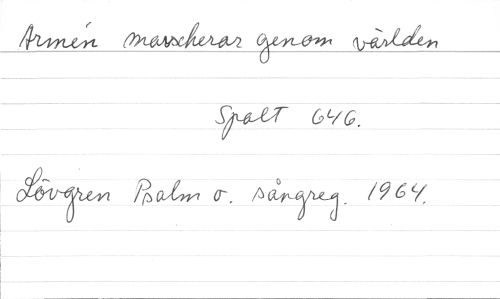 Armén marscherar genom världen
Spalt 646.
Lövgren Psalm o. sångreg. 1964.